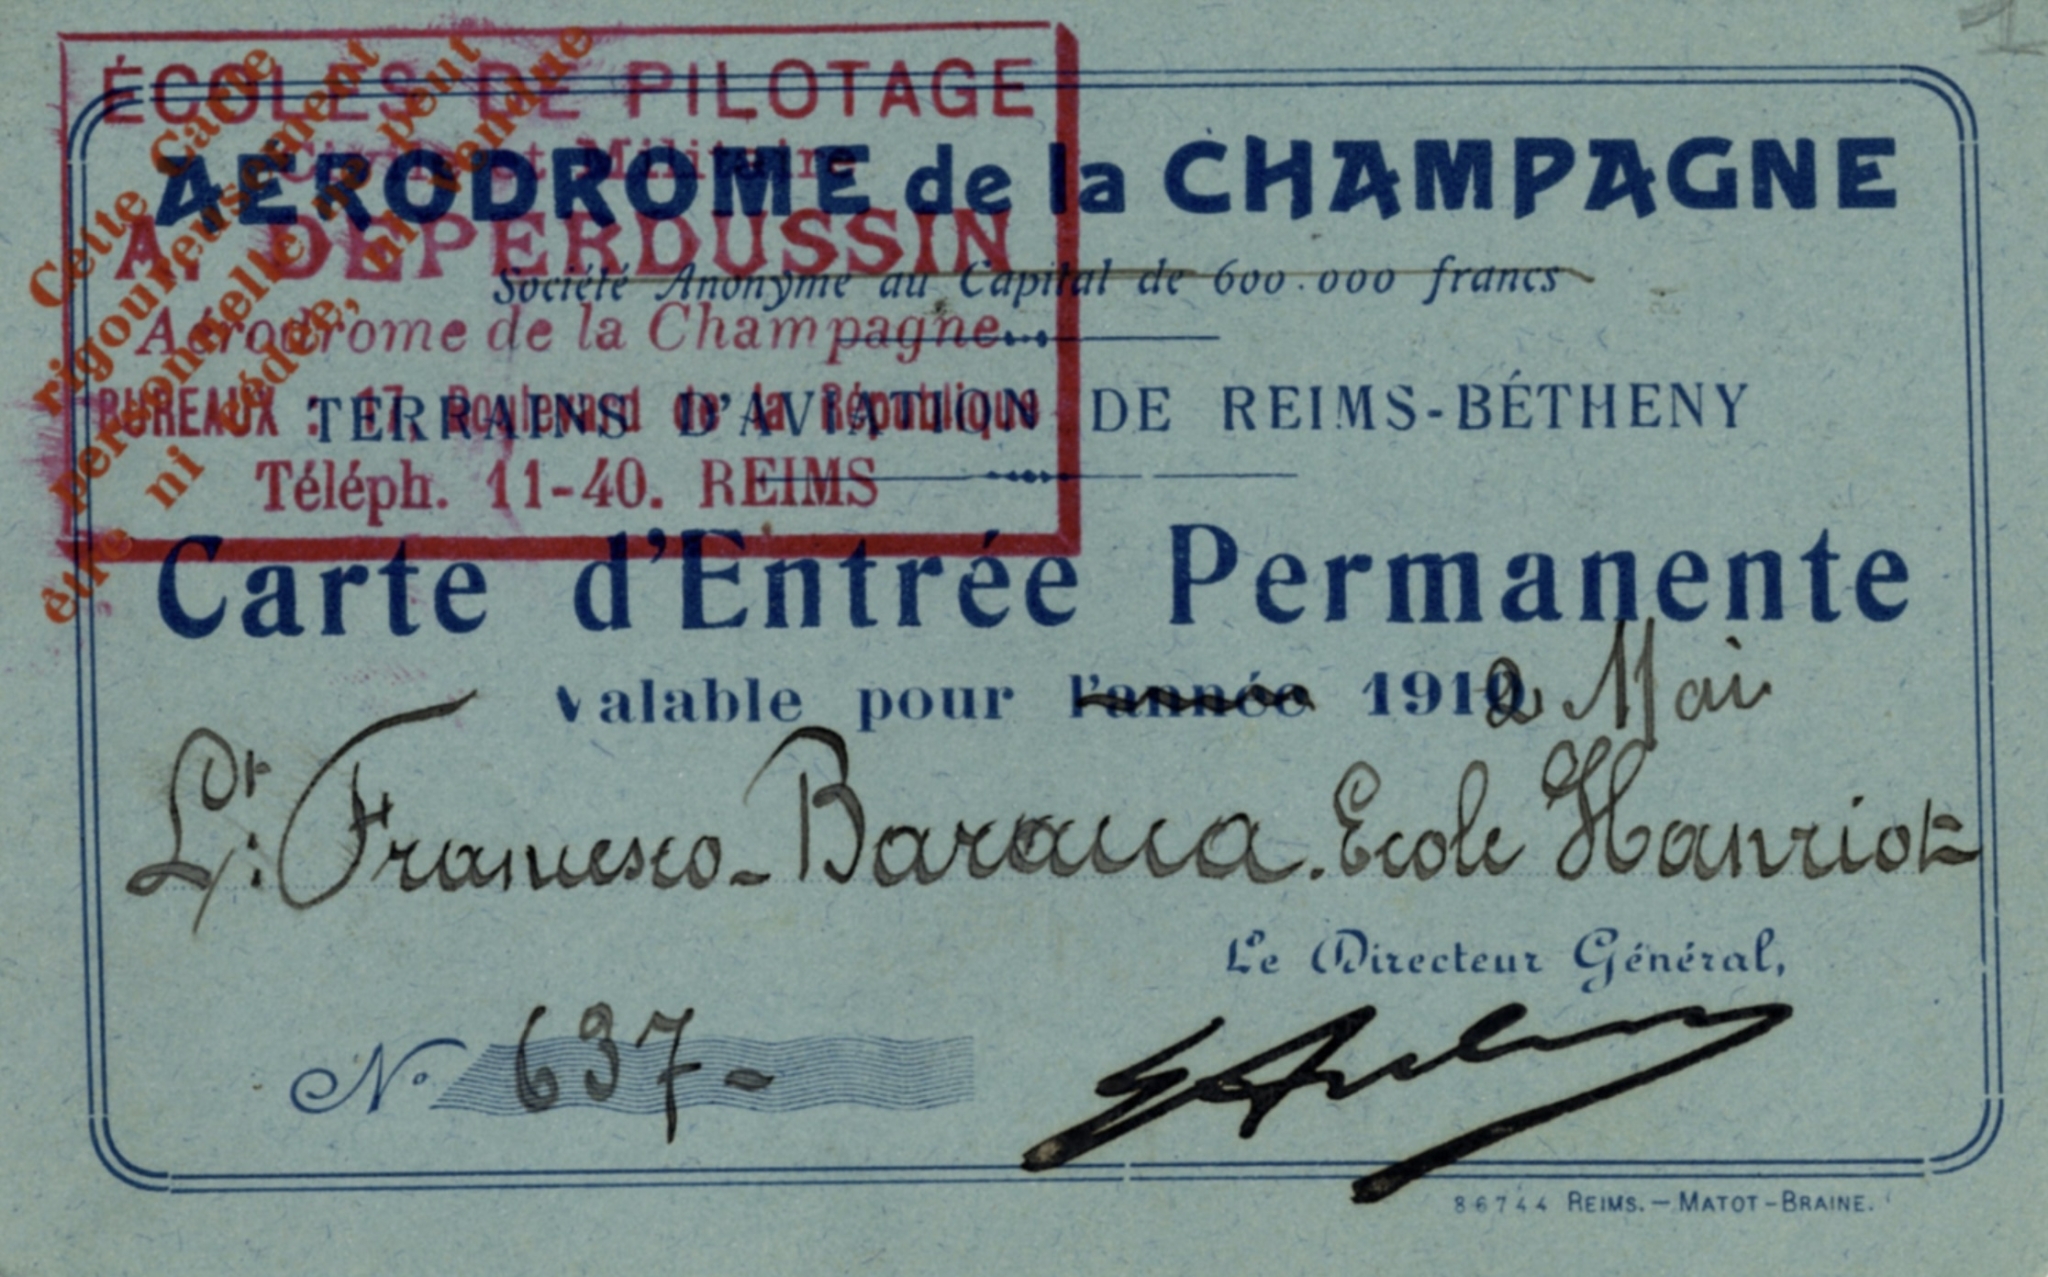 ÉCOLES DE PILOTAGE
Civile et Militaire
A. DEPERDUSSIN
Aérodrome de la Champagne
BUREAUX : 17, Boulevard de la République
Téléph. 11-40. REIMS
Cette Carte
rigoureusement
personnelle ne peut
être ni cédée, ni vendue
AERODROME de la CHAMPAGNE
Société Anonyme au Capital de 600.000 francs
TERRAINS D'AVIATION DE REIMS-BÉTHENY
Carte d'Entrée Permanente
Valable pour l'année 1912 Mai
Lt: Francesco-Baracca. Ecole Hanriot-
Le Directeur Général,
No 637-
86744 REIMS. — MATOT-BRAINE.